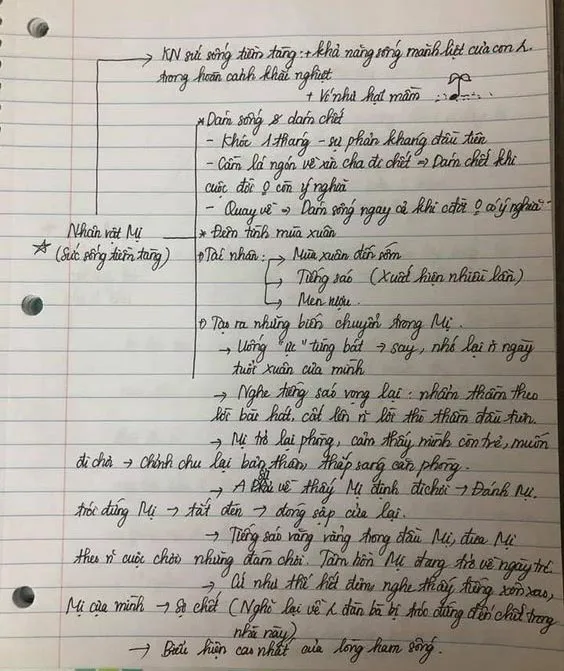 KN sức sống tiềm tàng: + khả năng sống mãnh liệt của con λ.
trong hoàn cảnh khắc nghiệt
+ Ví như hạt mầm
* Dám sống & dám chết
- Khóc 1 tháng - sự phản kháng đầu tiên
- Cầm lá ngón về xin cha đi chết ⇒ Dám chết khi
cuộc đời ko còn ý nghĩa
- Quay về ⇒ Dám sống ngay cả khi cđời ko có ý nghĩa
Nhân vật Mị
(Sức sống tiềm tàng)
* Đêm tình mùa xuân
Tác nhân: → Mùa xuân đến sớm
→ Tiếng sáo (xuất hiện nhiều lần)
→ Men rượu.
Tạo ra những biến chuyển trong Mị.
→ Uống "ực" từng bát → say, nhớ lại ~ ngày
tuổi xuân của mình
→ Nghe tiếng sáo vọng lại: nhẩm thầm theo
lời bài hát, cất lên ~ lời thì thầm đầu tiên.
→ Mị trở lại phòng, cảm thấy mình còn trẻ, muốn
đi chơi → Chỉnh chu lại bản thân, thắp sáng căn phòng.
→ A Sử về thấy Mị định đi chơi → Đánh Mị,
trói đứng Mị → tắt đèn → đóng sập cửa lại.
→ Tiếng sáo văng vẳng trong đầu Mị, đưa Mị
theo ~ cuộc chơi những đám chơi. Tâm hồn Mị đang trở về ngày trc
→ Cứ như thế hết đêm, nghe thấy từng xôn xao,
Mị cựa mình → Sợ chết (Nghĩ lại về λ đàn bà bị trói đứng đến chết trong
nhà này)
→ Biểu hiện cao nhất của lòng ham sống.